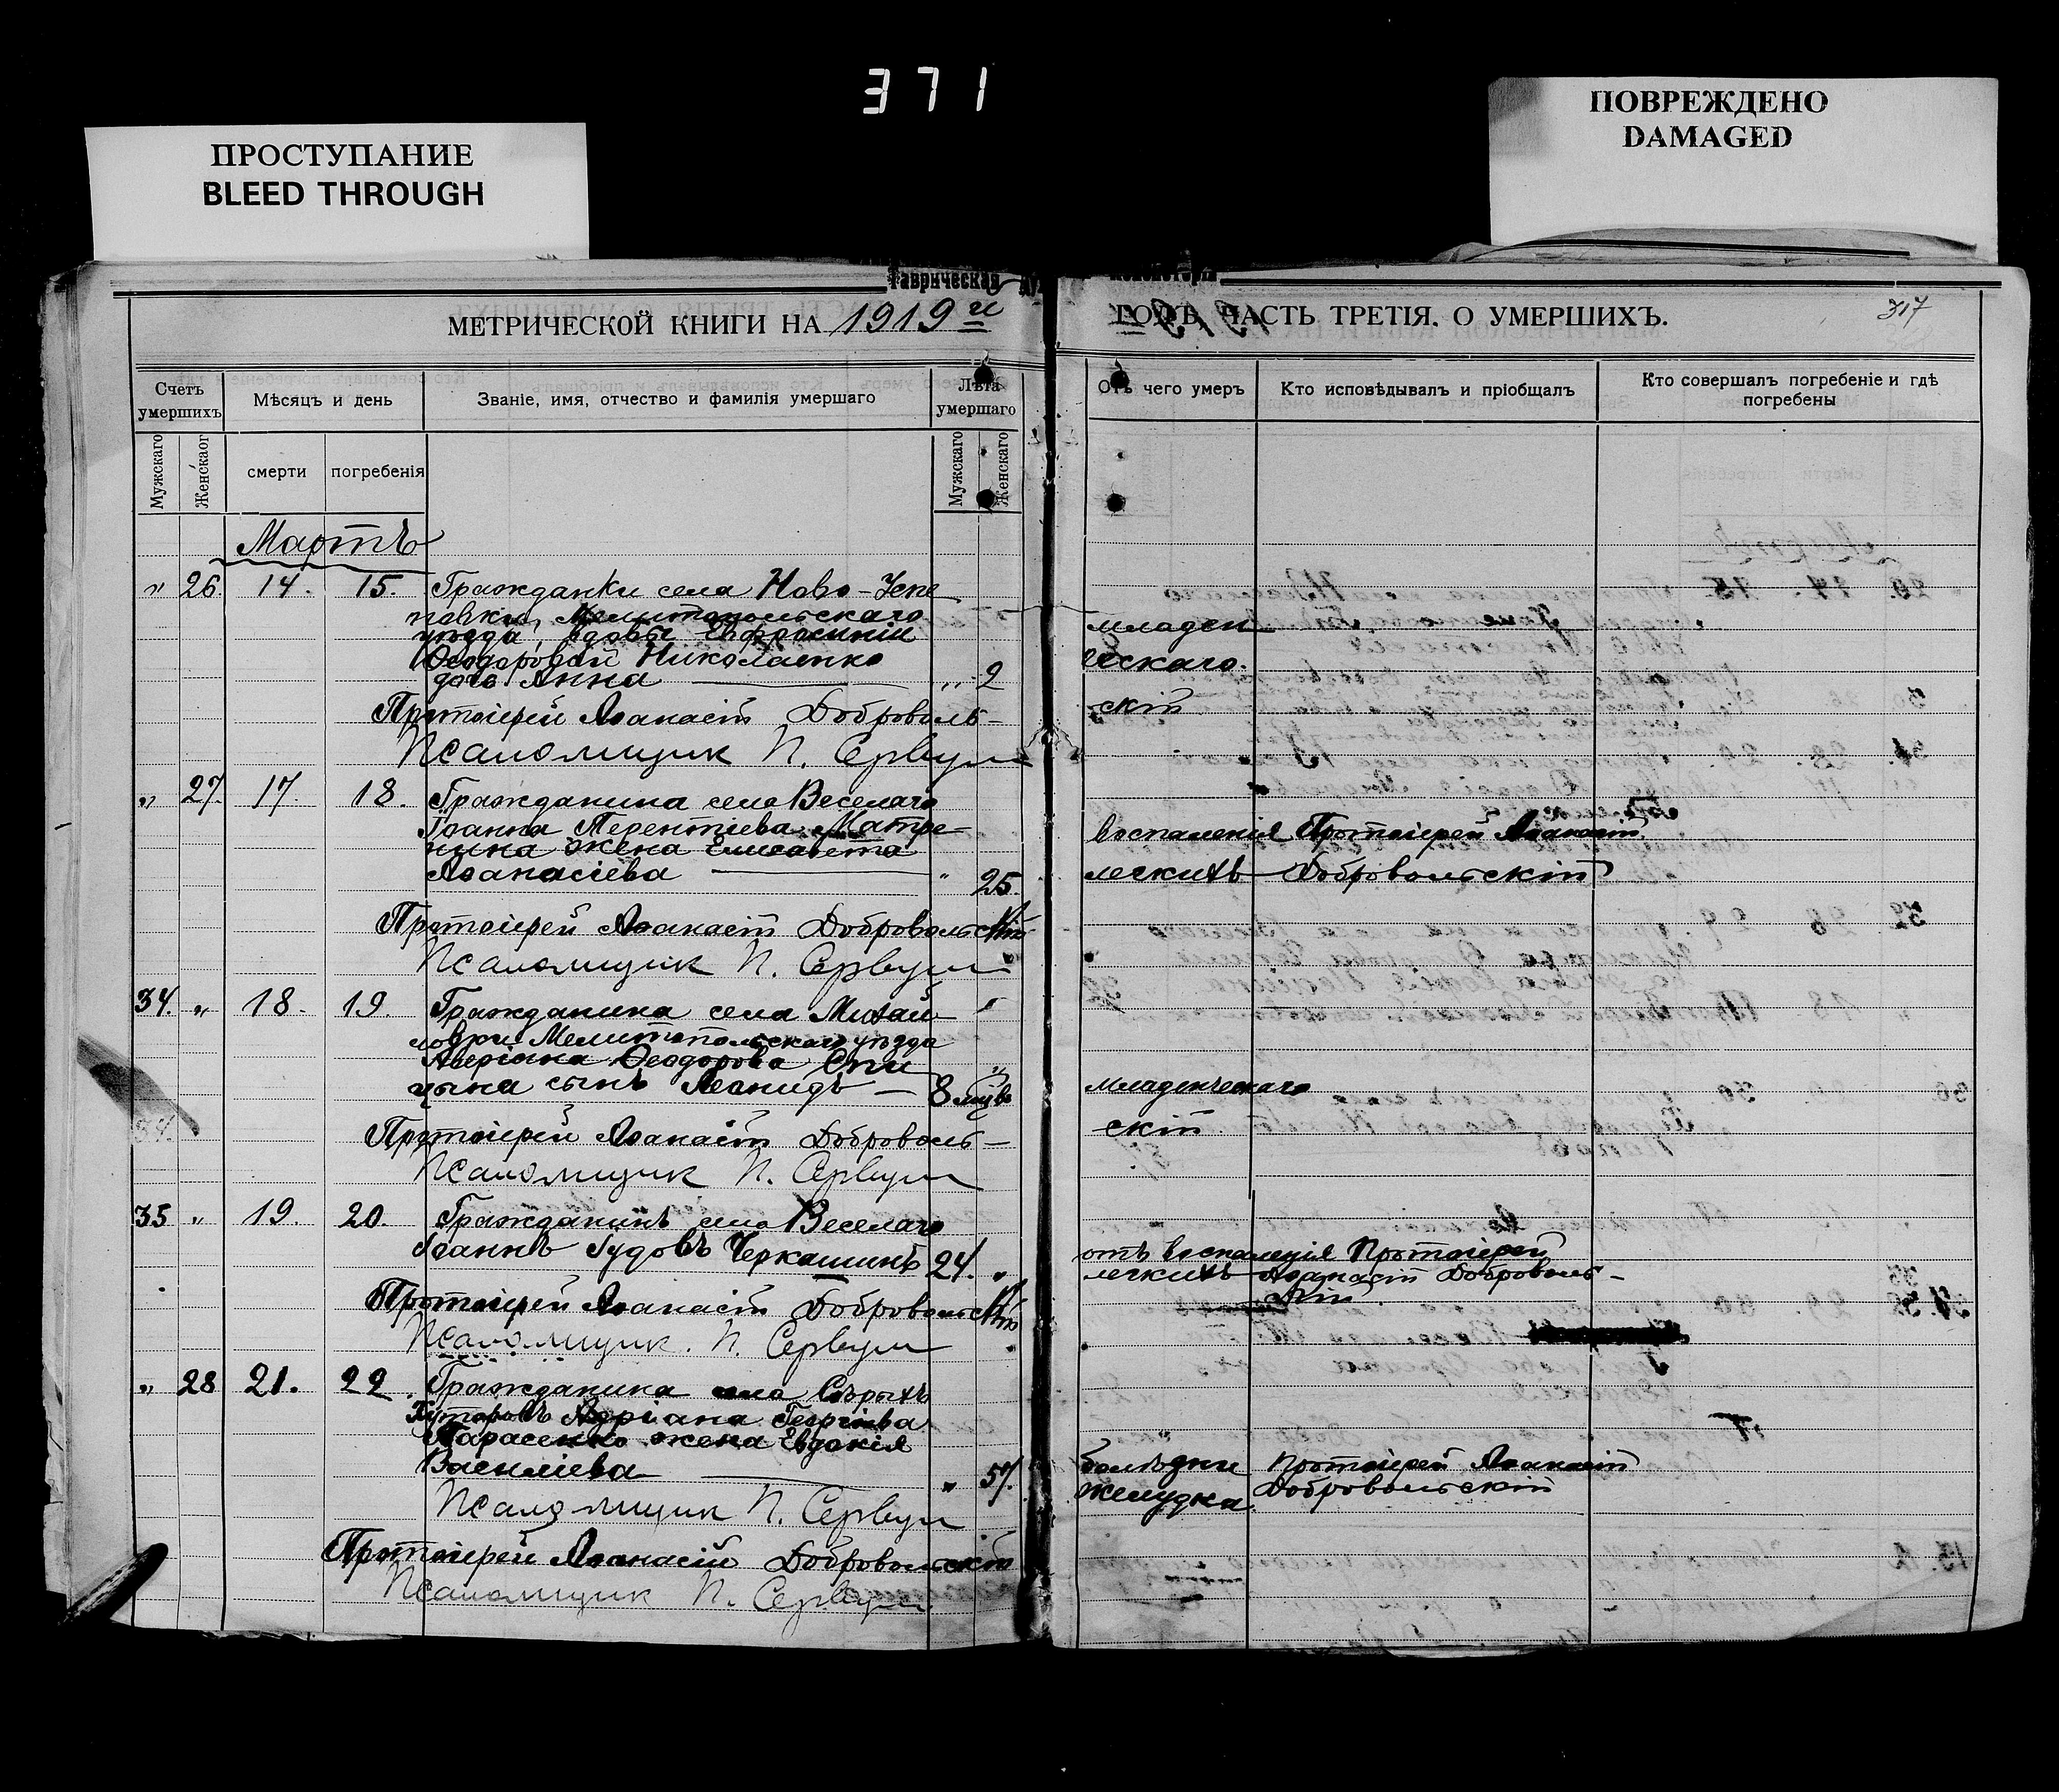 371
ПРОСТУПАНИЕ
BLEED THROUGH
ПОВРЕЖДЕНО
DAMAGED
Таврическая
МЕТРИЧЕСКОЙ КНИГИ НА 1919й
ГОДЪ, ЧАСТЬ ТРЕТІЯ. О УМЕРШИХЪ.
317
Счетъ умершихъ
Мѣсяцъ и день
Званіе, имя, отчество и фамилія умершаго
Лѣта умершаго
Отъ чего умеръ
Кто исповѣдывалъ и пріобщалъ
Кто совершалъ погребеніе и гдѣ погребены
Мужскаго
Женскаог
смерти
погребенія
Мужскаго
Женскаго
Мартъ
" 26. 14. 15. Гражданки села Ново-
павки, Мелитопольскаго
уѣзда, вдовы Евфросиніи
Ѳеодоровой Николаенко
дочь Анна " 2
младен
ческаго.
Протоіерей Аѳанасій Доброволь-
скій
Псаломщик П. Сервул
" 27. 17. 18. Гражданина села Веселаго
Іоанна Терентіева Матре-
нина жена Елисавета
Аѳанасіева " 25.
воспаленія Протоіерей Аѳанасій
легкихъ Добровольскій
Протоіерей Аѳанасій Добровольскій
Псаломщик П. Сервул
34. " 18. 19. Гражданина села Михай-
ловки Мелитопольскаго уѣзда
Ѳеодорова Спи
цына сынъ Леонидъ 8 мцвъ "
младенческаго
Протоіерей Аѳанасій Доброволь-
скій
Псаломщик П. Сервул
35 " 19. 20. Гражданинъ села Веселаго
Іоаннъ Іудовъ Черкашинъ 24. "
отъ воспаленія Протоіерей
легкихъ Аѳанасій Доброволь-
скій
Протоіерей Аѳанасій Добровольскій
Псаломщик. П. Сервул
" 28 21. 22. Гражданина села Сѣрыхъ
Хуторовъ Адріана Георгіева
Тарасенко жена Евдокія
Василіева " 57.
болѣзни Протоіерей Аѳанасій
желудка Добровольскій
Псаломщик П. Сервул
Протоіерей Аѳанасій Добровольскій
Псаломщик П. Сервул